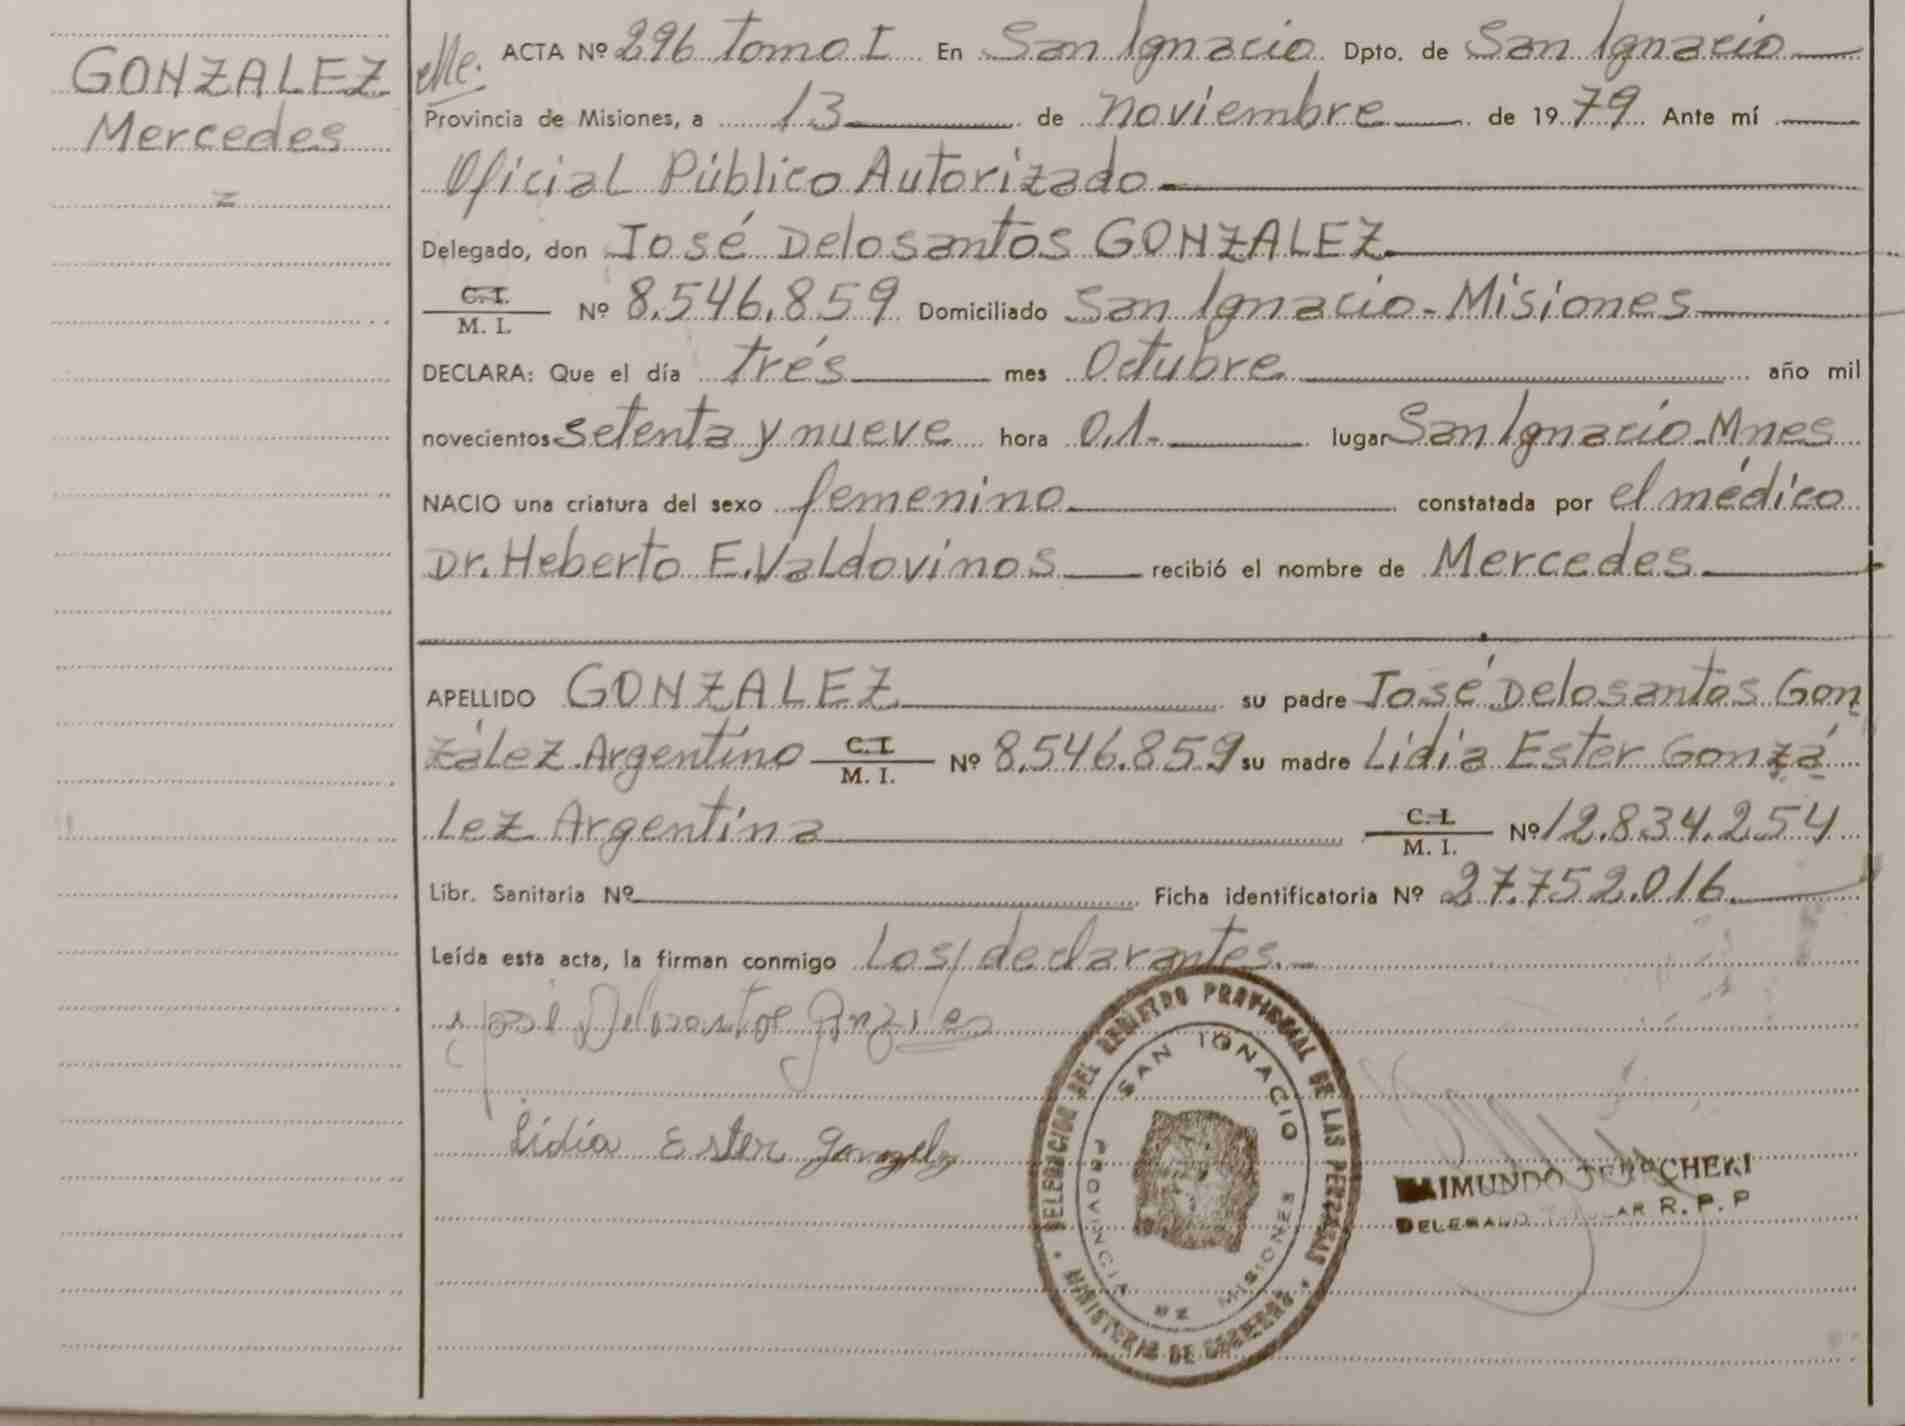 GONZALEZ
Mercedes
ACTA Nº 296 tomo I En San Ignacio Dpto. de San Ignacio
Provincia de Misiones, a 13 de noviembre de 1979 Ante mí
Oficial Público Autorizado
Delegado, don José Delosantos GONZALEZ
C. I.
M. I. Nº 8.546.859 Domiciliado San Ignacio - Misiones
DECLARA: Que el día trés mes Octubre año mil
novecientos setenta y nueve hora 0,1.- lugar San Ignacio - Mnes
NACIO una criatura del sexo femenino constatada por el médico
Dr. Heberto E. Valdovinos recibió el nombre de Mercedes
APELLIDO GONZALEZ su padre José Delosantos Gon
zález Argentino C. I. M. I. Nº 8.546.859 su madre Lidia Ester Gonzá
lez Argentina C. I. M. I. Nº 12.834.254
Libr. Sanitaria Nº Ficha identificatoria Nº 27.752.016
Leída esta acta, la firman conmigo Los/declarantes.-
José Delosantos Gonzalez
Lidia Ester Gonzalez
DELEGACION DEL REGISTRO PROVINCIAL DE LAS PERSONAS
SAN IGNACIO
PROVINCIA DE MISIONES
MINISTERIO DE GOBIERNO
RAIMUNDO
DELEGADO TITULAR R. P. P